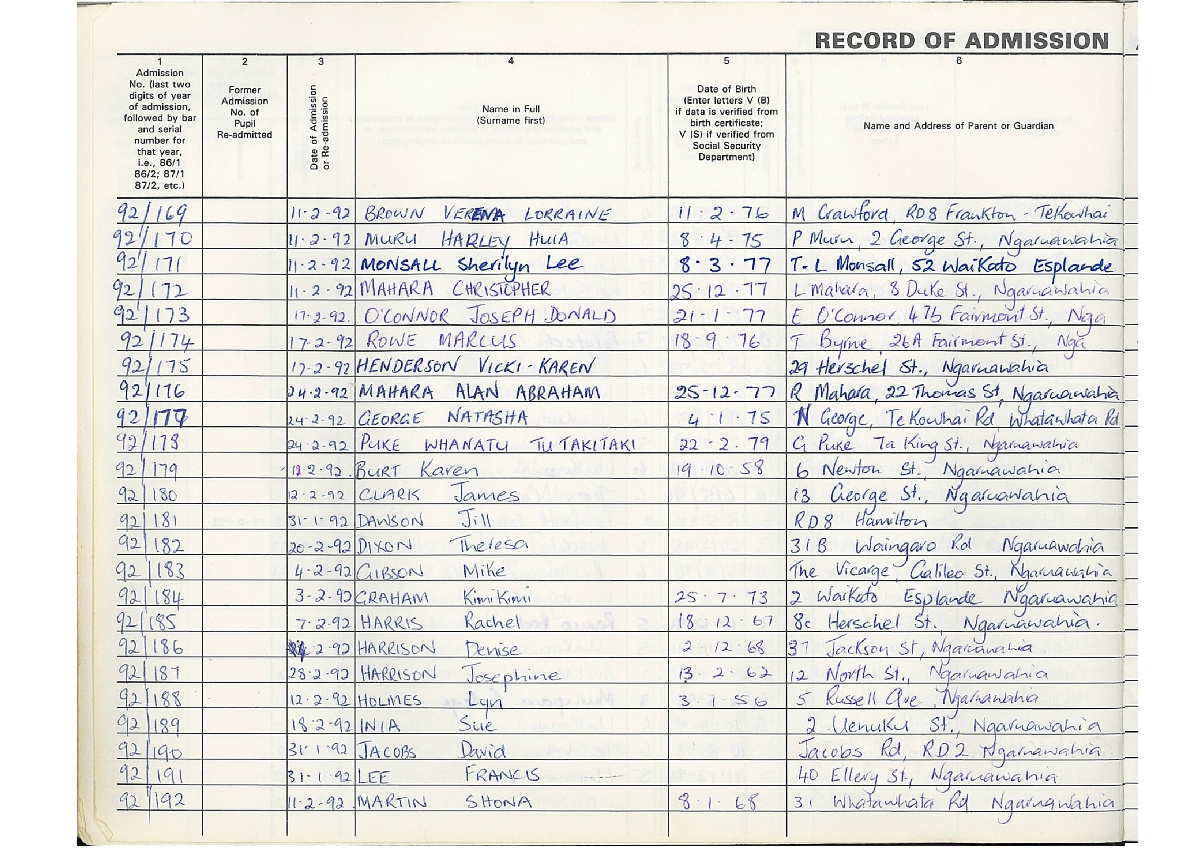 RECORD OF ADMISSION
1 2 3 4 5 6
Admission No. (last two digits of year of admission, followed by bar and serial number for that year, i.e., 86/1 86/2; 87/1 87/2, etc.)
Former Admission No. of Pupil Re-admitted
Date of Admission or Re-admission
Name in Full (Surname first)
Date of Birth (Enter letters V (B) if data is verified from birth certificate; V (S) if verified from Social Security Department)
Name and Address of Parent or Guardian
92/169 11-2-92 BROWN VERENA LORRAINE 11·2·76 M Crawford, RD8 Frankton - TeKowhai
92/170 11-2-92 MURU HARLEY HUIA 8·4·75 P Muru, 2 George St., Ngaruawahia
92/171 11-2-92 MONSALL Sherilyn Lee 8·3·77 T.L Monsall, 52 Waikato Esplande
92/172 11-2-92 MAHARA CHRISTOPHER 25·12·77 L Mahara, 8 Duke St., Ngaruawahia
92/173 17-2-92. O'CONNOR JOSEPH DONALD 21·1·77 E O'Connor, 47b Fairmont St., Nga
92/174 17-2-92 ROWE MARCUS 18-9·76 T Byrne, 26A Fairmont St., Nga
92/175 17-2-92 HENDERSON VICKI-KAREN 29 Herschel St., Ngaruawahia
92/176 24-2-92 MAHARA ALAN ABRAHAM 25-12·77 R Mahara, 22 Thomas St, Ngaruawahia
92/177 24-2-92 GEORGE NATASHA 4·1·75 N George, TeKowhai Rd, Whatawhata Rd
92/178 24-2-92 PUKE WHANATU TUTAKITAKI 22·2·79 G Puke 7a King St., Ngaruawahia
92/179 12-2-92. BURT Karen 19·10·58 6 Newton St., Ngaruawahia
92/180 12-2-92 CLARK James 13 George St., Ngaruawahia
92/181 31-1-92 DAWSON Jill RD8 Hamilton
92/182 20-2-92 DIXON Theresa 31B Waingaro Rd Ngaruawahia
92/183 4-2-92 GIBSON Mike The Vicarge, Galileo St., Ngaruawahia
92/184 3-2-92 GRAHAM KimiKimi 25·7·73 2 Waikato Esplande Ngaruawahia
92/185 7-2-92 HARRIS Rachel 18·12·67 8c Herschel St., Ngaruawahia.
92/186 2-92 HARRISON Denise 2·12·68 37 Jackson St, Ngaruawahia
92/187 28-2-92 HARRISON Josephine 13·2·62 12 North St., Ngaruawahia
92/188 12-2-92 HOLMES Lyn 3·1·56 5 Russell Ave. Ngaruawahia
92/189 18-2-92 INIA Sue 2 Uenuku St., Ngaruawahia
92/190 31·1·92 JACOBS David Jacobs Rd, RD2 Ngaruawahia
92/191 31-1-92 LEE FRANCIS 40 Ellery St, Ngaruawahia
92/192 11-2-92 MARTIN SHONA 8·1·68 31 Whatawhata Rd Ngaruawahia